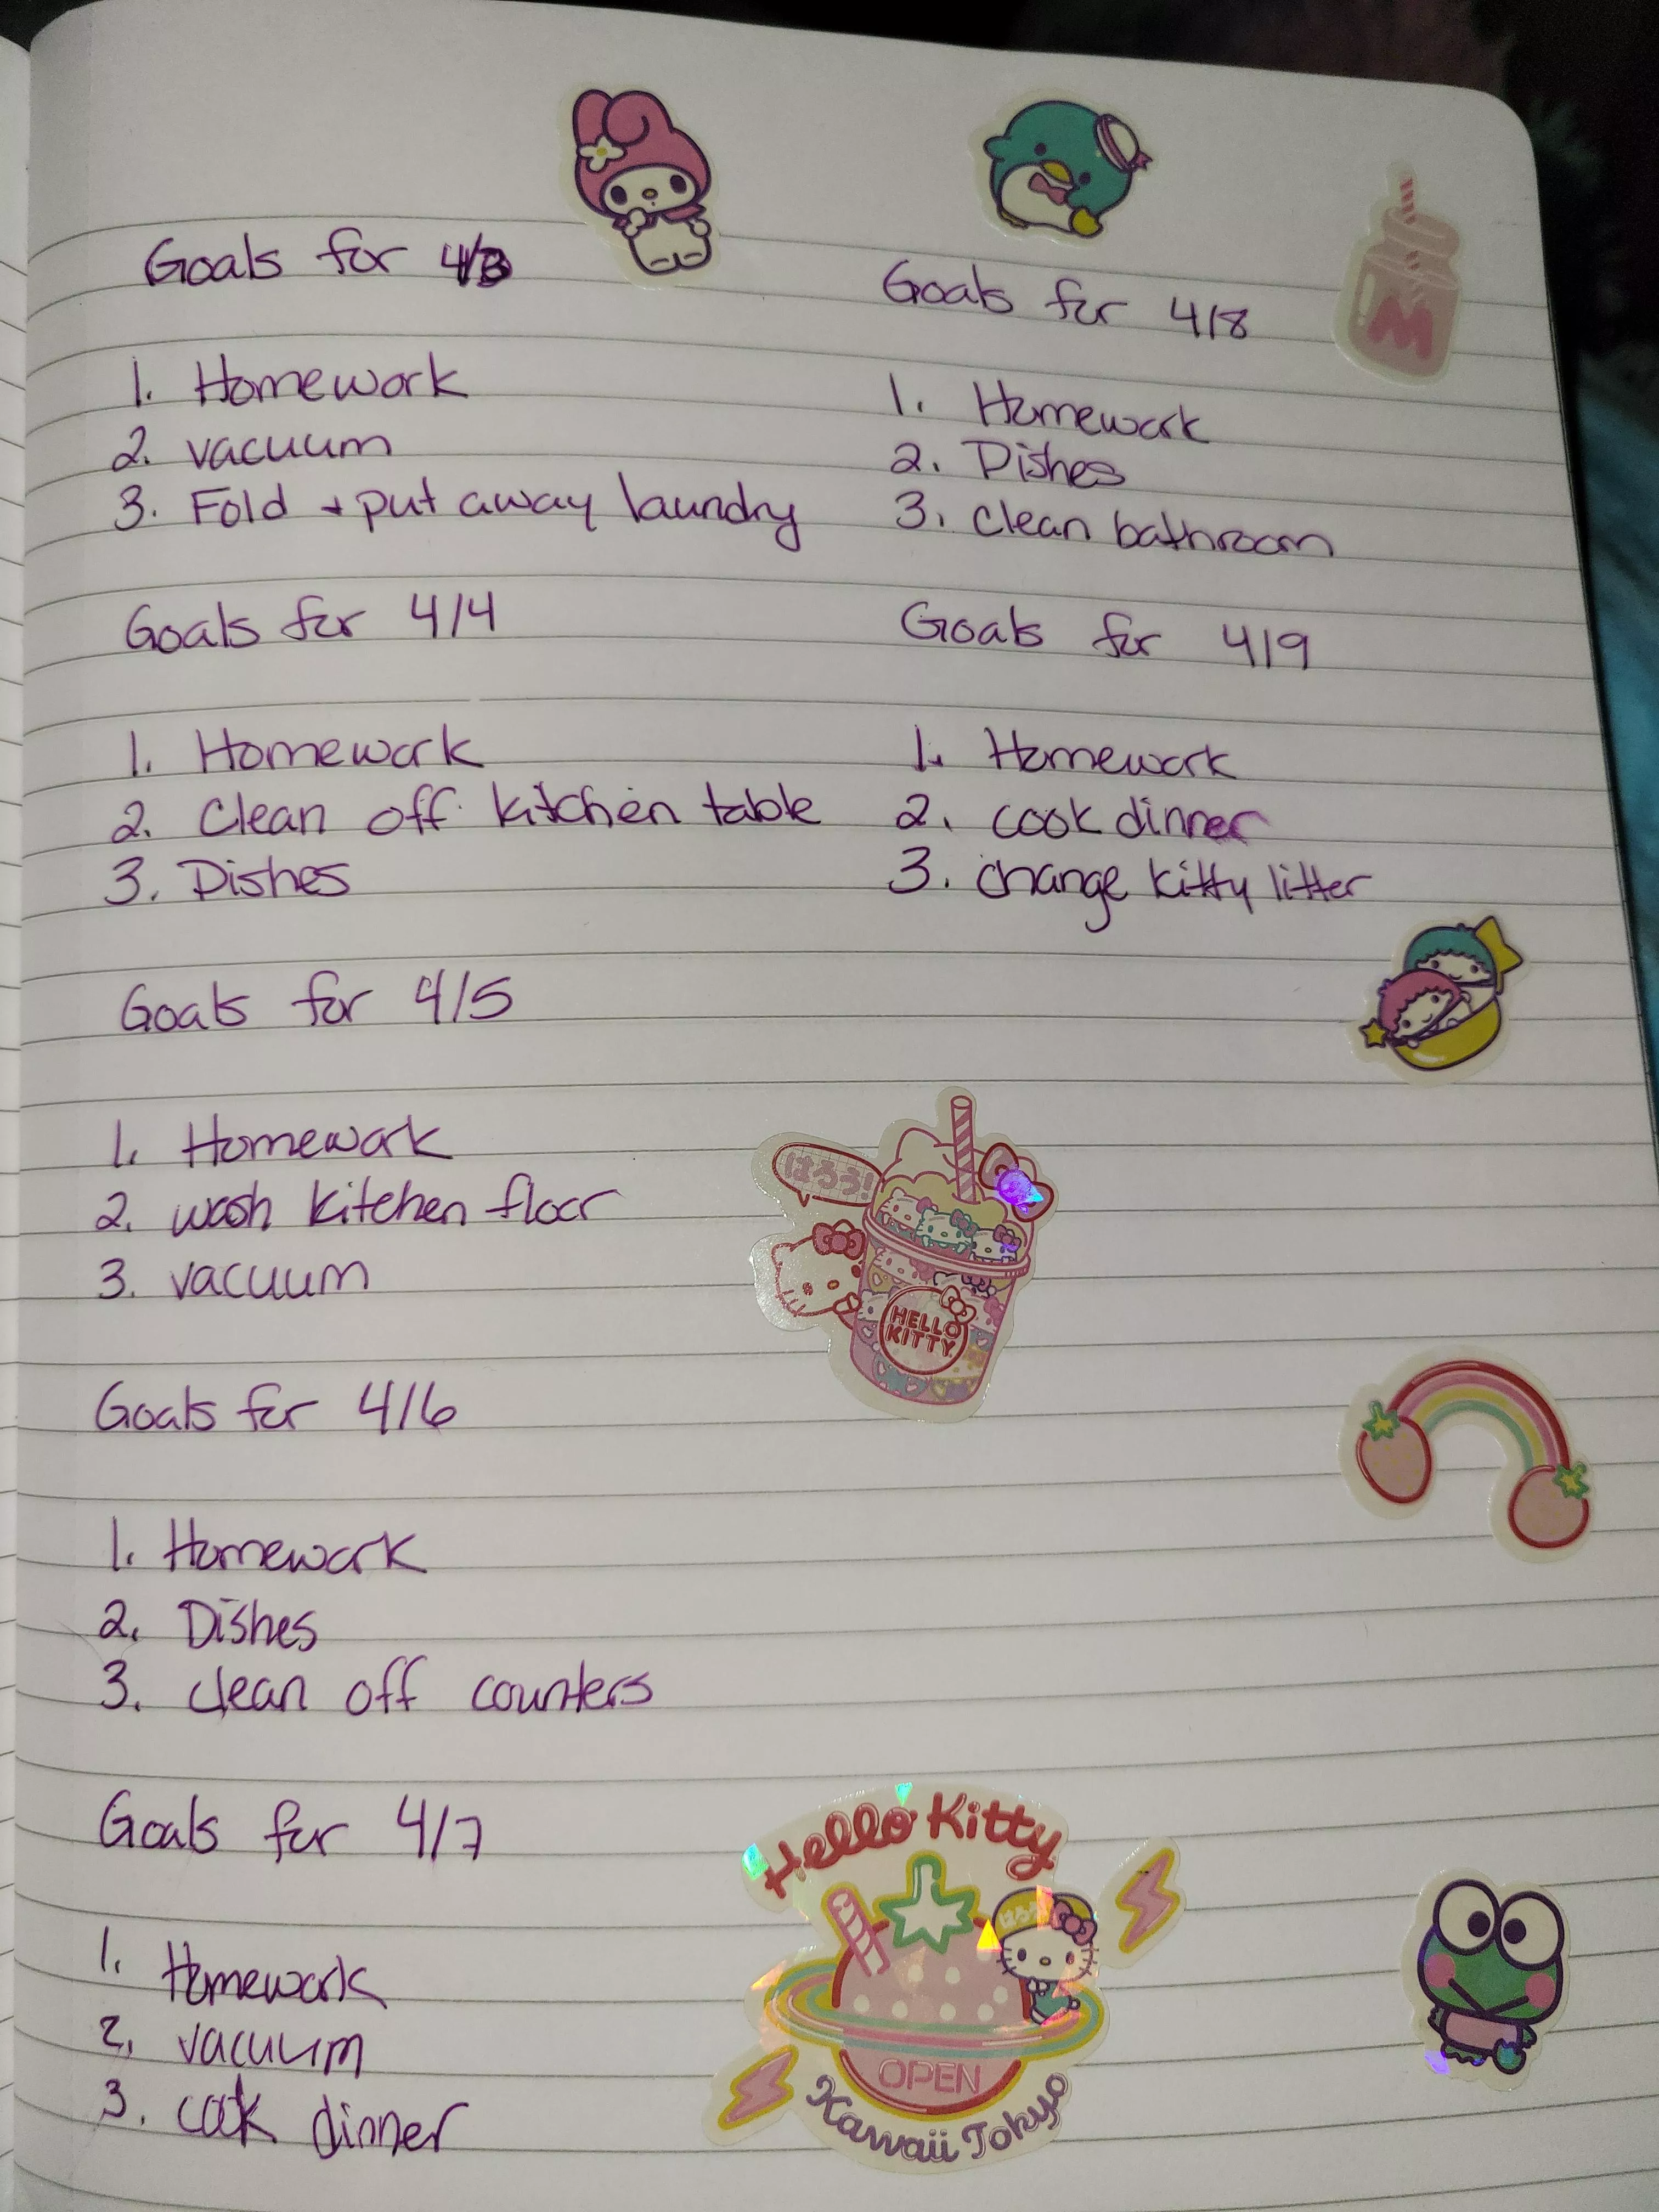 Goals for 4/3
1. Homework
2. vacuum
3. Fold + put away laundry
Goals for 4/4
1. Homework
2. Clean off kitchen table
3. Dishes
Goals for 4/5
1. Homework
2. wash kitchen floor
3. vacuum
Goals for 4/6
1. Homework
2. Dishes
3. clean off counters
Goals for 4/7
1. Homework
2. vacuum
3. cook dinner
Goals for 4/8
1. Homework
2. Dishes
3. clean bathroom
Goals for 4/9
1. Homework
2. cook dinner
3. change kitty litter
M
はろう!
HELLO
KITTY
Hello Kitty
OPEN
Kawaii Tokyo